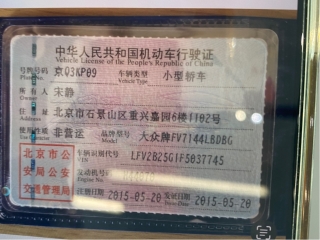 中华人民共和国机动车行驶证
Vehicle License of the People's Republic of China
号牌号码 京Q3KP09 车辆类型 小型轿车
Plate No. Vehicle Type
所有人 宋静
Owner
住址 北京市石景山区重兴嘉园6楼1102号
Address
使用性质 非营运 品牌型号 大众牌FV7144LBDBG
Model
北京市公安局公安交通管理局
车辆识别代号 LFV2B25G1F5037745
VIN
发动机号码
Engine No.
注册日期 2015-05-20 发证日期 2015-05-20